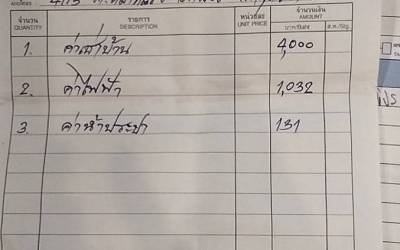 ADDRESS
จำนวน รายการ หน่วยละ จำนวนเงิน
QUANTITY DESCRIPTION UNIT PRICE AMOUNT
1. ค่าเช่าบ้าน 4,000
2. ค่าไฟฟ้า 1,032
3. ค่าน้ำประปา 131